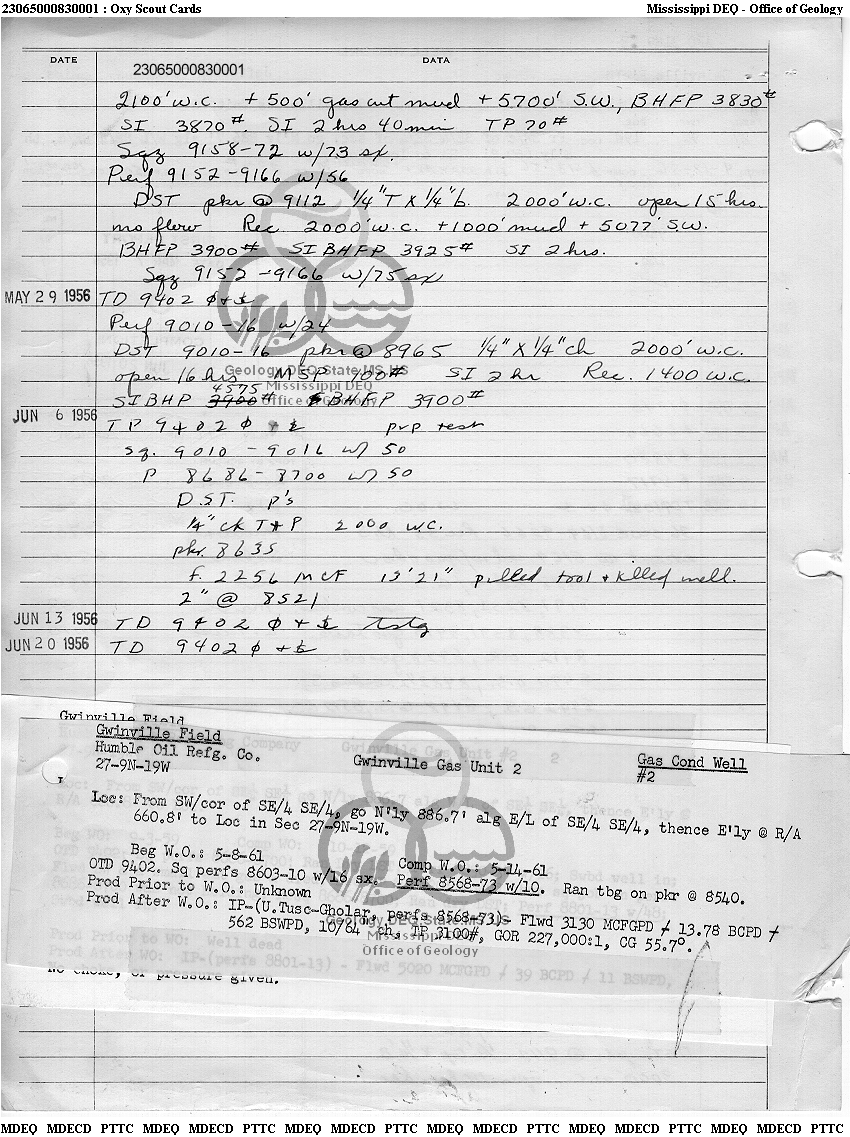 23065000830001 : Oxy Scout Cards
Mississippi DEQ - Office of Geology
DATE
DATA
23065000830001
2100' w.c. + 500' gas cut mud + 5700' S.W., BHFP 3830#
SI 3870#. SI 2 hrs 40 min TP 70#
Sqz 9158-72 w/73 sx.
Perf 9152-9166 w/56
DST pkr @ 9112 1/4"T X 1/4"b. 2000' w.c. open 15 hrs.
no flow Rec. 2000' w.c. +1000' mud + 5077' S.W.
BHFP 3900# SIBHFP 3925# SI 2 hrs.
Sqz 9152-9166 w/75 sx
MAY 29 1956 TD 9402
Perf 9010-16 w/24
DST 9010-16 pkr @ 8965 1/4" X 1/4" ch 2000' w.c.
open 16 hrs MSP 700# SI 2 hr Rec. 1400 w.c.
4575
SIBHP 3900# BHFP 3900#
JUN 6 1956 TP 9402 pvp test
sq. 9010 - 9016 w/ 50
P 8686-8700 w/ 50
D.S.T. p's
1/4" ck T + P 2000 w.c.
pkr. 8635
f. 2256 MCF 13'21" pulled tool + killed well.
2" @ 8521
JUN 13 1956 TD 9402 tstg
JUN 20 1956 TD 9402
Geology DEQ State MS US
Mississippi DEQ
Office of Geology
Gwinville Field
Gwinville Field
Humble Oil Refg. Co.
Gwinville Gas Unit 2
Gas Cond Well
27-9N-19W
#2
Loc: From SW/cor of SE/4 SE/4, go N'ly 886.7' alg E/L of SE/4 SE/4, thence E'ly @ R/A
660.8' to Loc in Sec 27-9N-19W.
Beg W.O.: 5-8-61 Comp W.O.: 5-14-61
OTD 9402. Sq perfs 8603-10 w/16 sx. Perf 8568-73 w/10. Ran tbg on pkr @ 8540.
Prod Prior to W.O.: Unknown
Prod After W.O.: IP-(U.Tusc-Gholar, perfs 8568-73)- Flwd 3130 MCFGPD / 13.78 BCPD /
562 BSWPD, 10/64" ch, TP 3100#, GOR 227,000:1, CG 55.7°.
Geology DEQ State MS US
Mississippi DEQ
Office of Geology
Prod Prior to WO: Well dead
Prod After WO: IP-(perfs 8801-13) - Flwd 5020 MCFGPD / 39 BCPD / 11 BSWPD,
No choke, or pressure given.
MDEQ MDECD PTTC MDEQ MDECD PTTC MDEQ MDECD PTTC MDEQ MDECD PTTC MDEQ MDECD PTTC MDEQ MDECD PTTC